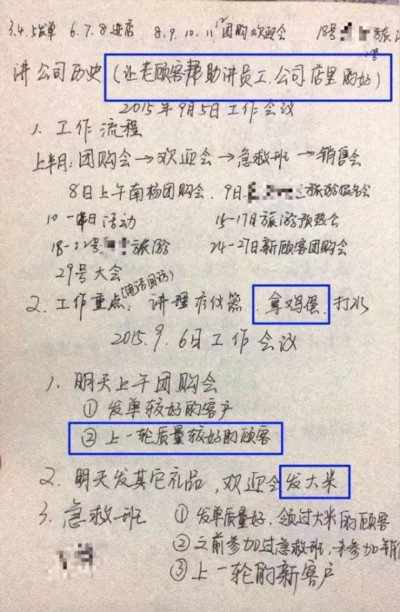 3.4.5发单 6.7.8进店 8.9.10.11团购欢迎会 18号 旅游
讲公司历史(让老顾客帮助讲员工.公司店里的好)
2015年9月5日工作会议
1. 工作流程
上半月:团购会→欢迎会→急救班→销售会
8日上午南杨团购会. 9日 旅游报告会
10一 日活动 15-17日旅游预热会
18-22号 旅游 24-27日新顾客团购会
29号大会
(电话回访)
2. 工作重点, 讲理疗仪器. 拿鸡蛋. 打水
2015.9.6日工作会议
1. 明天上午团购会
① 发单较好的客户
② 上一轮质量较好的顾客
2. 明天发其它礼品,欢迎会发大米
3. 急救班 ① 发单质量好.领过大米的顾客
② 之前参加过急救班.未参加销
③ 上一轮的新客户